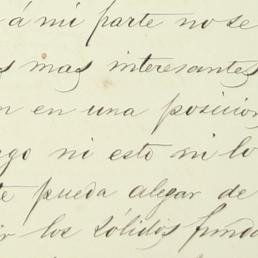 á mi parte no se
mas interesantes
n en una posicion
go ni esto ni lo
te pueda alegar de
ir los sólidos funda